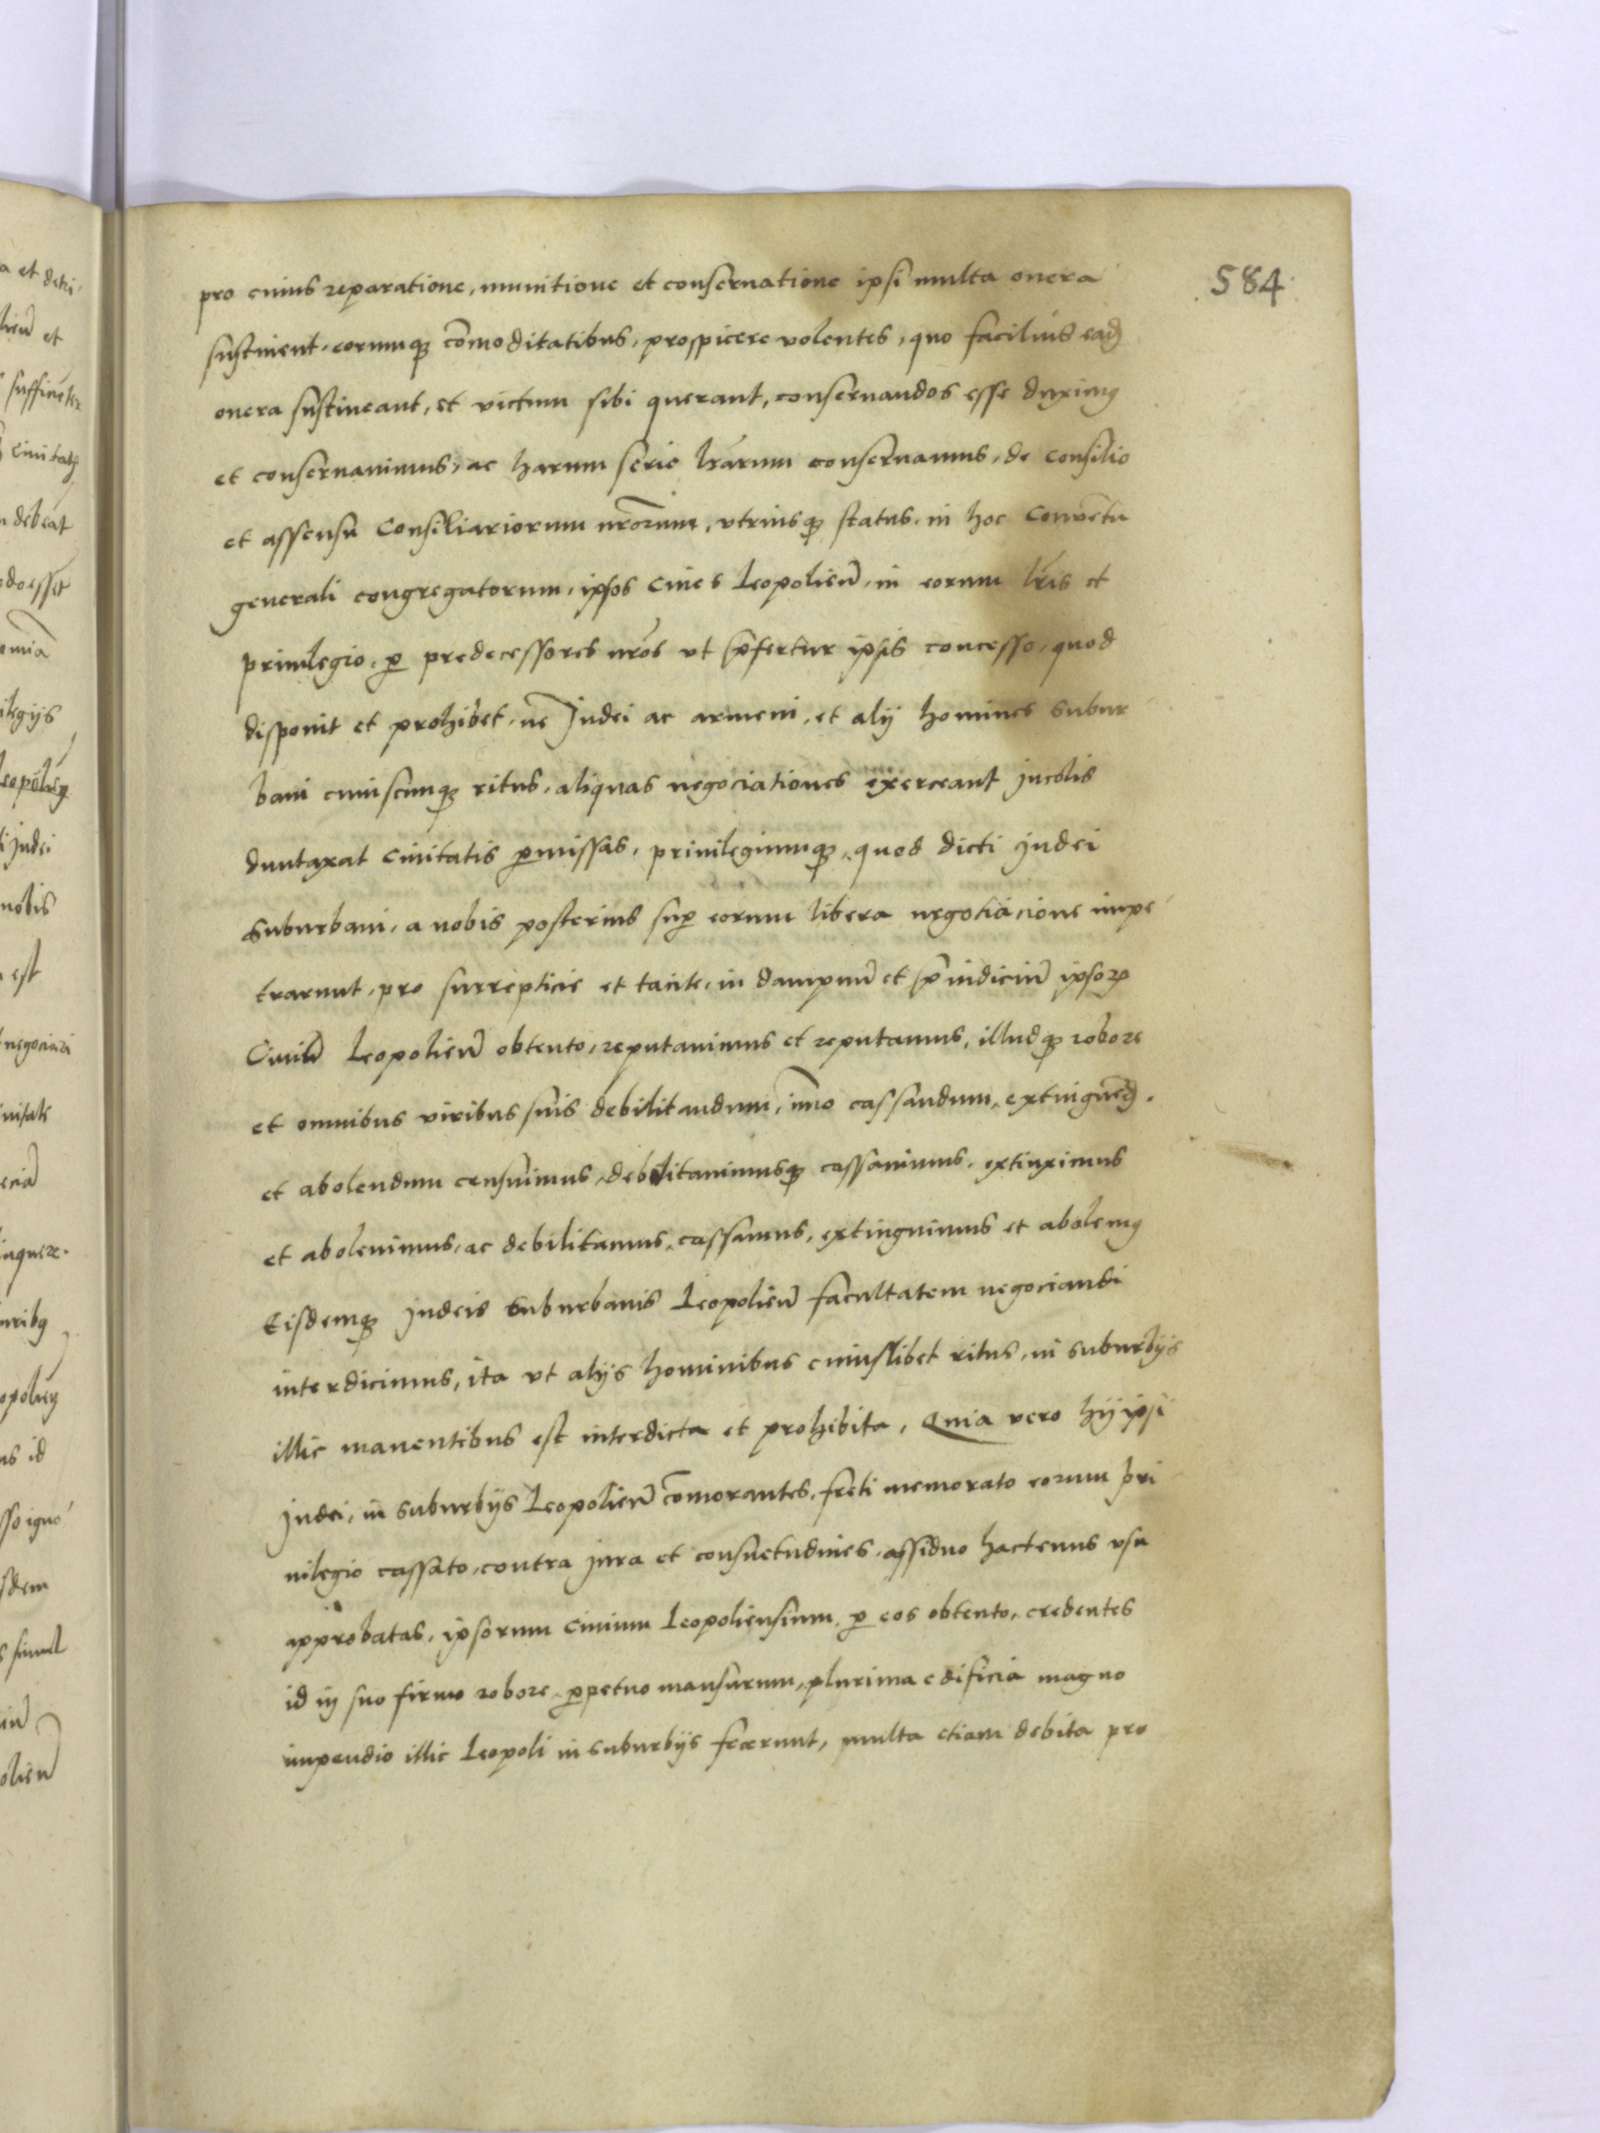 584
pro cuius reparatione, munitione et conseruatione ipsi multa onera
sustinent, eorumq₃ cōmoditatibus, prospicere volentes, quo facilius ead̄
onera sustineant, et victum sibi querant, conseruandos esse duximꝰ
et conseruauimus, ac harum serie lr̄arum conseruamus, de consilio
et assensu Consiliariorum nr̄orum, vtriusq₃ status, in hoc Conuētu
generali congregatorum, ipsos Ciues Leopolien̄, in eorum lr̄is et
priuilegio, ꝑ predecessores nr̄os vt p̄fertur ipsis concesso, quod
disponit et prohibet, ne Judei ac armeni, et alij homines subur
bani cuiuscunq₃ ritus, aliquas negociationes exerceant incolis
duntaxat Ciuitatis ꝑmissas, priuilegiumq₃, quod dicti Judei
Suburbani, a nobis posterius suꝑ eorum libera negotiacione impe
trarunt, pro surrepticie et tacite, in dampnū et p̄iudiciū ipsoꝝ
Ciuiū Leopolien̄ obtento, reputauimus et reputamus, illudq₃ robore
et omnibus viribus suis debilitandum, im̄o cassandum, extinguēd̄.
et abolendum censuimus, debilitauimusq₃ cassauimus, extinximus
et aboleuimus, ac debilitamus, cassamus, extinguimus et abolemꝰ
Eisdemq₃ Judeis Suburbanis Leopolien̄ facultatem negociandi
interdicimus, ita vt alijs hominibus cuiuslibet ritus, in suburbijs
illic manentibus est interdicta et prohibita, Quia vero hij ipsi
Judei, in suburbijs Leopolien̄ cōmorantes, freti memorato eorum pri
uilegio cassato, contra jura et consuetudines, assiduo hactenus vsu
approbatas, ipsorum Ciuium Leopoliensium, ꝑ eos obtento, credentes
id in suo firmo robore, ꝑpetuo mansurum, plurima edificia magno
impendio illic Leopoli in suburbijs fecerunt, multa etiam debita pro